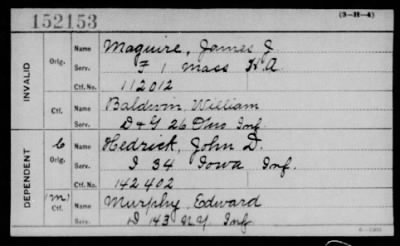 152153
(3-H-4)
INVALID
Orig.
Name
Maguire, James J
Serv.
F 1 Mass H.A.
Ctf. No.
112012
Ctf.
Name
Baldwin, William
Serv.
D & G 26 Ohio Inf.
DEPENDENT
C
Orig.
Name
Hedrick, John D.
Serv.
I 34 Iowa Inf.
Ctf. No.
142402
(M)
Ctf.
Name
Murphy Edward
Serv.
D 143 N.Y. Inf.